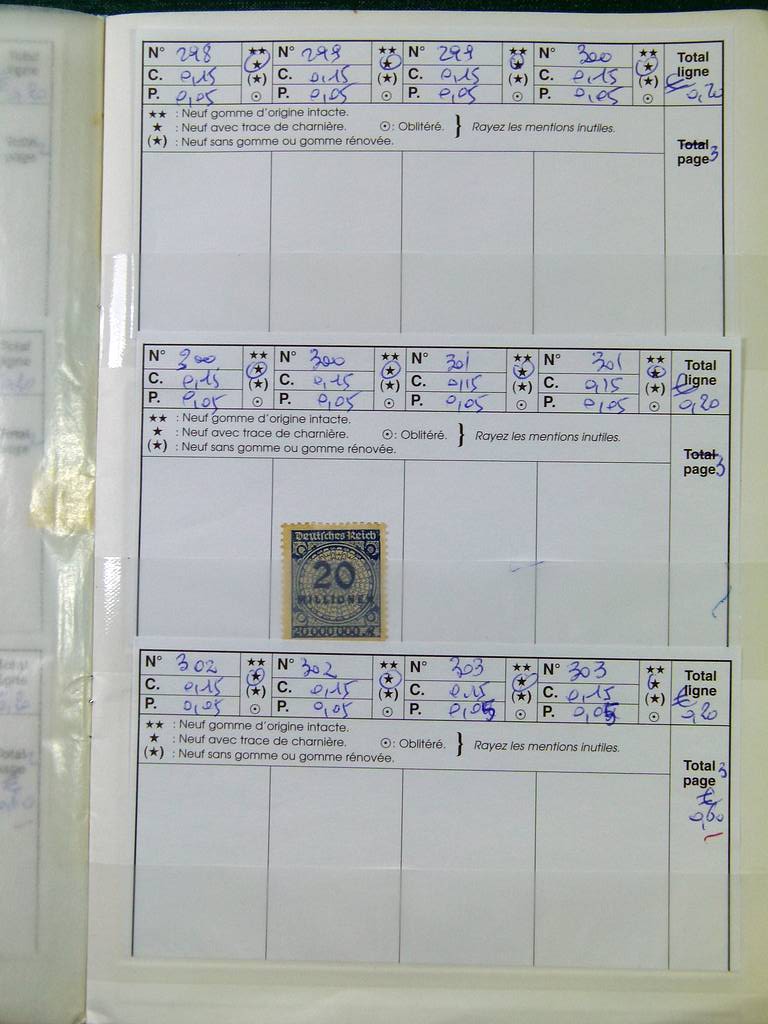 N° 298 ★★ N° 299 ★★ N° 299 ★★ N° 300 ★★ Total
C. 0,15 ★ C. 0,15 ★ C. 0,15 ★ C. 0,15 ★ ligne
P. 0,05 (★) P. 0,05 (★) P. 0,05 (★) P. 0,05 (★) € 0,20
★★ : Neuf gomme d'origine intacte.
★ : Neuf avec trace de charnière. ⊙: Oblitéré. } Rayez les mentions inutiles.
(★) : Neuf sans gomme ou gomme rénovée.
Total
page 3
N° 300 ★★ N° 300 ★★ N° 301 ★★ N° 301 ★★ Total
C. 0,15 ★ C. 0,15 ★ C. 0,15 ★ C. 0,15 ★ ligne
P. 0,05 (★) P. 0,05 (★) P. 0,05 (★) P. 0,05 (★) € 0,20
★★ : Neuf gomme d'origine intacte.
★ : Neuf avec trace de charnière. ⊙: Oblitéré. } Rayez les mentions inutiles.
(★) : Neuf sans gomme ou gomme rénovée.
Total
page 3
Deutsches Reich
20
MILLIONEN
20000000 M
N° 302 ★★ N° 302 ★★ N° 303 ★★ N° 303 ★★ Total
C. 0,15 ★ C. 0,15 ★ C. 0,15 ★ C. 0,15 ★ ligne
P. 0,05 (★) P. 0,05 (★) P. 0,05 (★) P. 0,05 (★) € 0,20
★★ : Neuf gomme d'origine intacte.
★ : Neuf avec trace de charnière. ⊙: Oblitéré. } Rayez les mentions inutiles.
(★) : Neuf sans gomme ou gomme rénovée.
Total
page 3
€
0,60